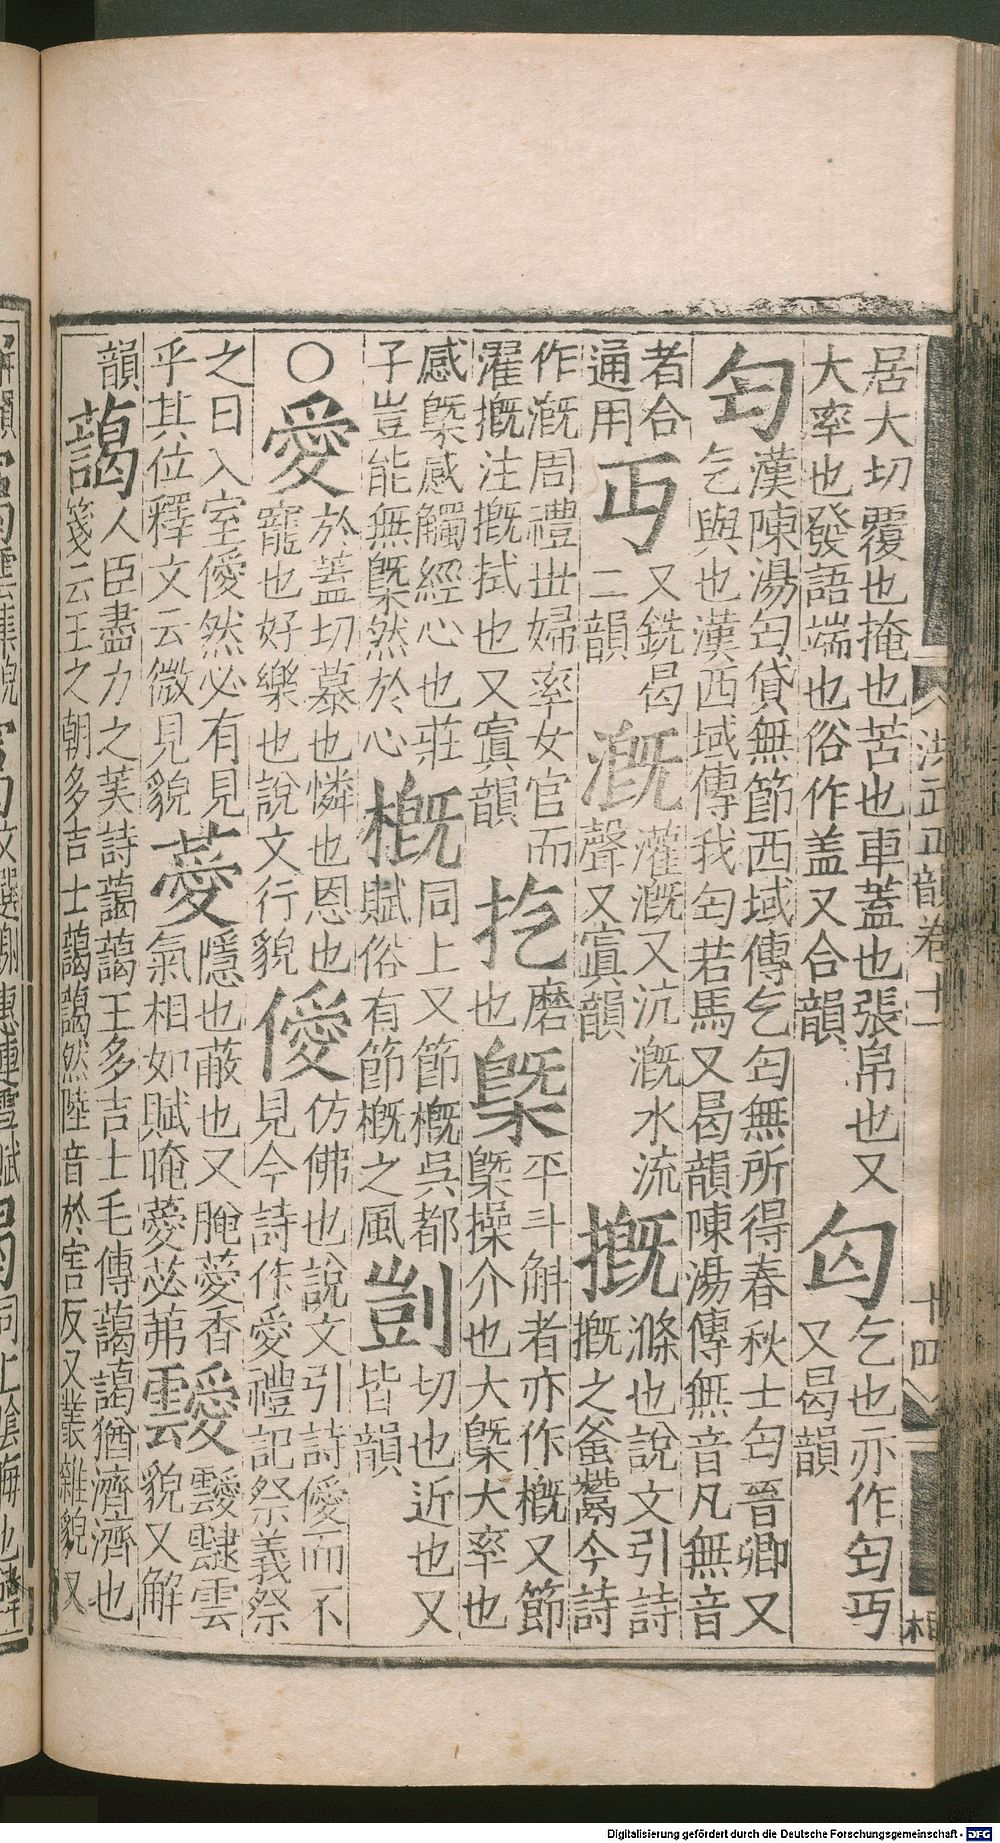 居大切覆也掩也苫也車蓋也張帛也又
大率也發語端也俗作盖又合韻
匃
乞也亦作匄丐
又曷韻
匄
漢陳湯匄貸無節西域傳乞匄無所得春秋士匄晉卿又
乞與也漢西域傳我匄若馬又曷韻陳湯傳無音凡無音
者合
通用
丐
又銑曷
二韻
漑
灌漑又沆漑水流
聲又寘韻
摡
滌也說文引詩
摡之釜鬵今詩
作漑周禮世婦率女官而
濯摡注摡拭也又寘韻
扢
磨
也
槩
平斗斛者亦作概又節
槩操介也大槩大率也
感槩感觸經心也莊
子豈能無槩然於心
概
同上又節概吳都
賦俗有節概之風
剴
切也近也又
皆韻
○愛
於蓋切慕也憐也恩也
寵也好樂也說文行貌
僾
仿佛也說文引詩僾而不
見今詩作愛禮記祭義祭
之日入室僾然必有見
乎其位釋文云微見貌
薆
隱也蔽也又腌薆香
氣相如賦晻薆苾茀
靉
靉靆雲
貌又解
韻
藹
人臣盡力之美詩藹藹王多吉士毛傳藹藹猶濟濟也
箋云王之朝多吉士藹藹然陸音於害反又叢雜貌又
洪武正韻卷十一
十四
Digitalisierung gefördert durch die Deutsche Forschungsgemeinschaft - DFG